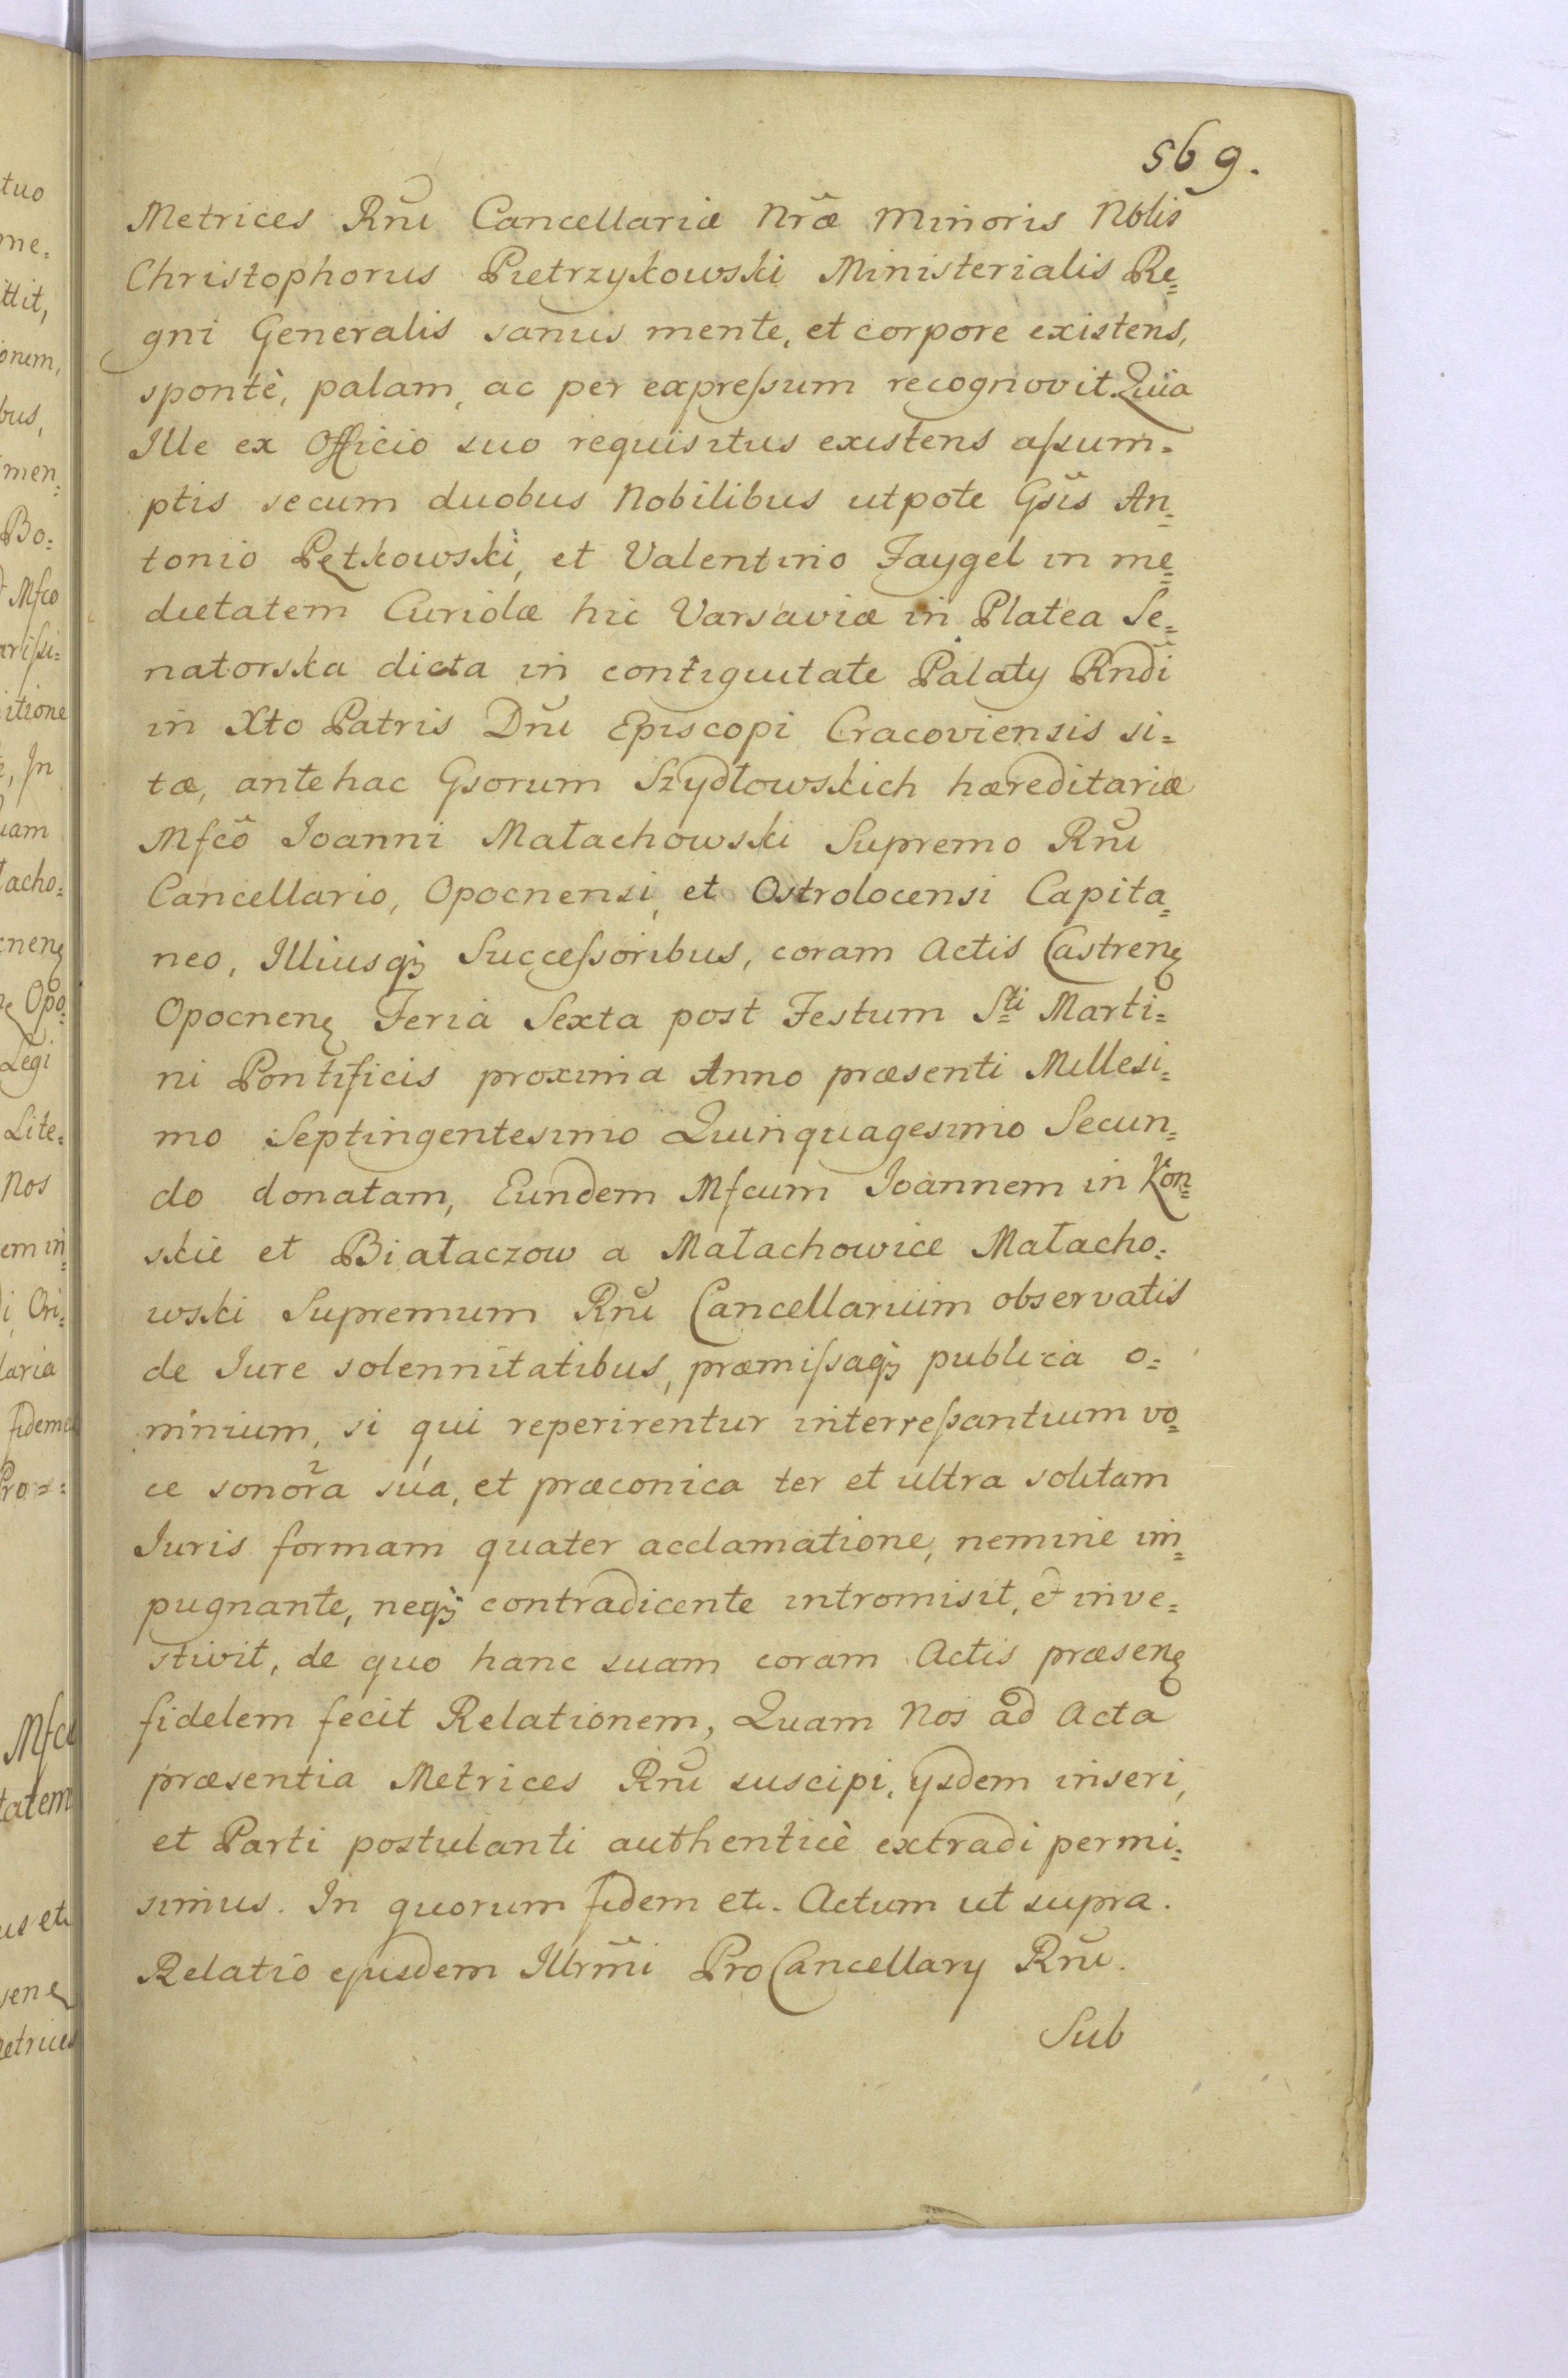 569.
Metrices Rñi Cancellariæ Nr̃æ Minoris Nblis
Christophorus Pietrzykowski Ministerialis Re=
gni Generalis sanus mente, et corpore existens,
spontè, palam, ac per expreſsum recognovit. Quia
Ille ex Officio suo requisitus existens aſsum=
ptis secum duobus Nobilibus utpote Gsis An=
tonio Pętkowski, et Valentino Faygel in me=
dietatem Curiolæ hic Varsaviæ in Platea Se=
natorska dicta in contiguitate Palaty Rndi
in Xto Patris Dñi Episcopi Cracoviensis si=
tæ, antehac Gsorum Szydłowskich hæreditariæ
Mfcõ Ioanni Małachowski Supremo Rñi
Cancellario, Opocnensi, et Ostrolocensi Capita=
neo, Illiusqȝ Succeſsoribus, coram Actis Castrenꝭ
Opocnenꝭ Feria Sexta post Festum Sti Marti=
ni Pontificis proxima Anno præsenti Millesi=
mo Septingentesimo Quinquagesimo Secun=
do donatam, Eundem Mfcum Ioannem in Kon=
skie et Białaczow a Małachowice Małacho=
wski Supremum Rñi Cancellarium observatis
de Iure solennitatibus, præmiſsaqȝ publica o=
mnium, si qui reperirentur interreſsantium vo=
ce sonora sua, et præconica ter et ultra solitam
Iuris formam quater acclamatione, nemine im=
pugnante, neqȝ contradicente intromisit, et inve=
stivit, de quo hanc suam coram Actis præsenꝭ
fidelem fecit Relationem, Quam Nos ad Acta
præsentia Metrices Rñi suscipi, ysdem inseri,
et Parti postulanti authenticè extradi permi=
simus. In quorum fidem etc. Actum ut supra.
Relatio ejusdem Illrm̃i ProCancellary Rñi.
Sub